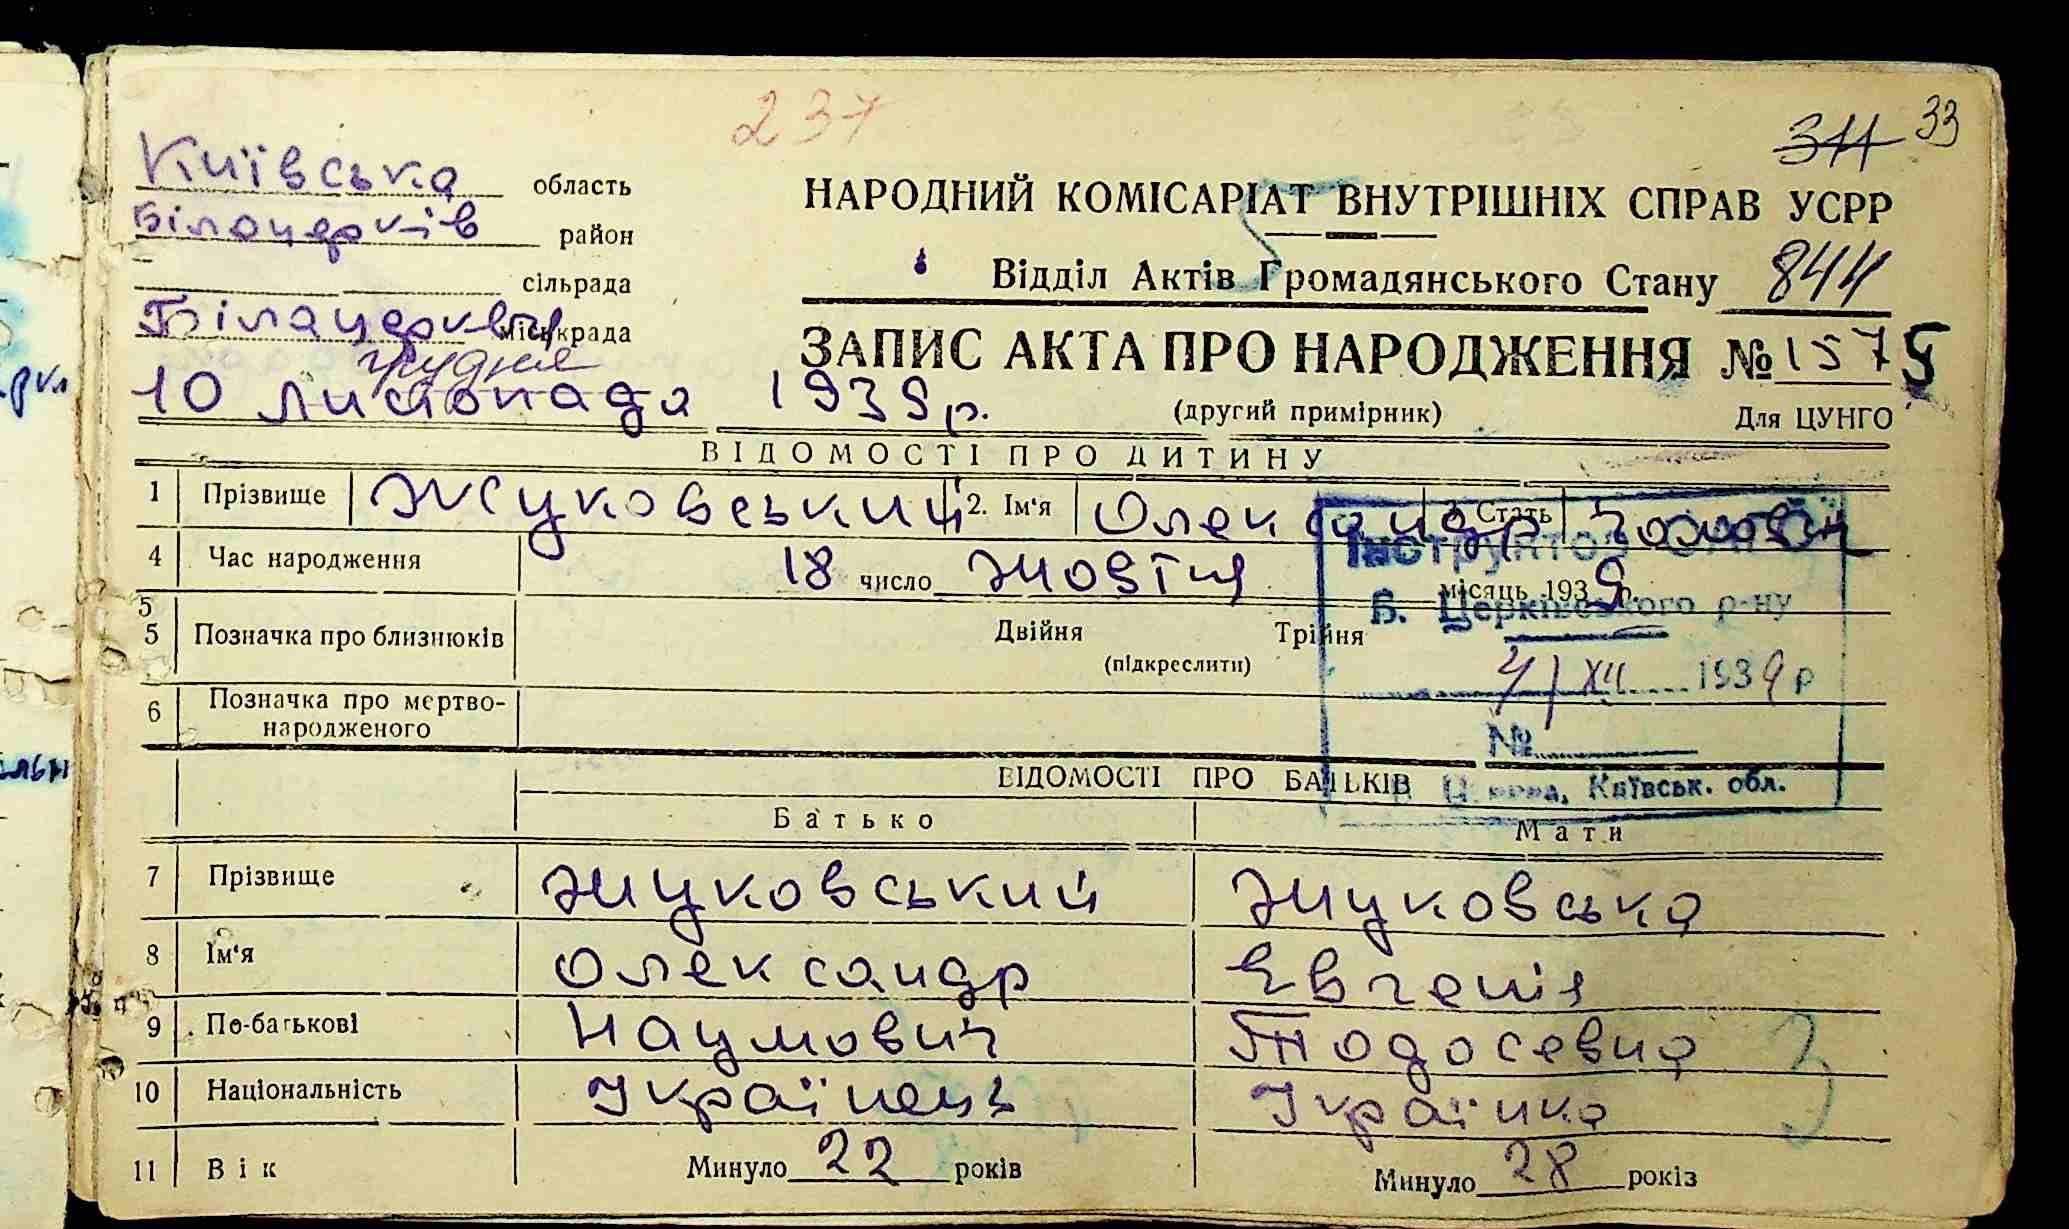 237
311 33
Київська область
Білоцерків район
сільрада
Білацерква міськрада
НАРОДНИЙ КОМІСАРІАТ ВНУТРІШНІХ СПРАВ УСРР
Відділ Актів Громадянського Стану 844
ЗАПИС АКТА ПРО НАРОДЖЕННЯ № 1575
грудня
10 листопада 1939 р.
(другий примірник) Для ЦУНГО
ВІДОМОСТІ ПРО ДИТИНУ
1 Прізвище Жуковський 2. Ім'я Олександр 3. Стать чоловіч
4 Час народження 18 число жовтня місяць 1939 р.
5
5 Позначка про близнюків Двійня Трійня
(підкреслити)
6 Позначка про мертво-
народженого
Інструктор
Б. Церківського р-ну
XII 1939 р
№
Церква, Київськ. обл.
ВІДОМОСТІ ПРО БАТЬКІВ
Батько Мати
7 Прізвище Жуковський Жуковська
8 Ім'я Олександр Евгенія
9 По-батькові Наумович Тодосевна
3
10 Національність Українець Українка
11 Вік Минуло 22 років Минуло 28 років